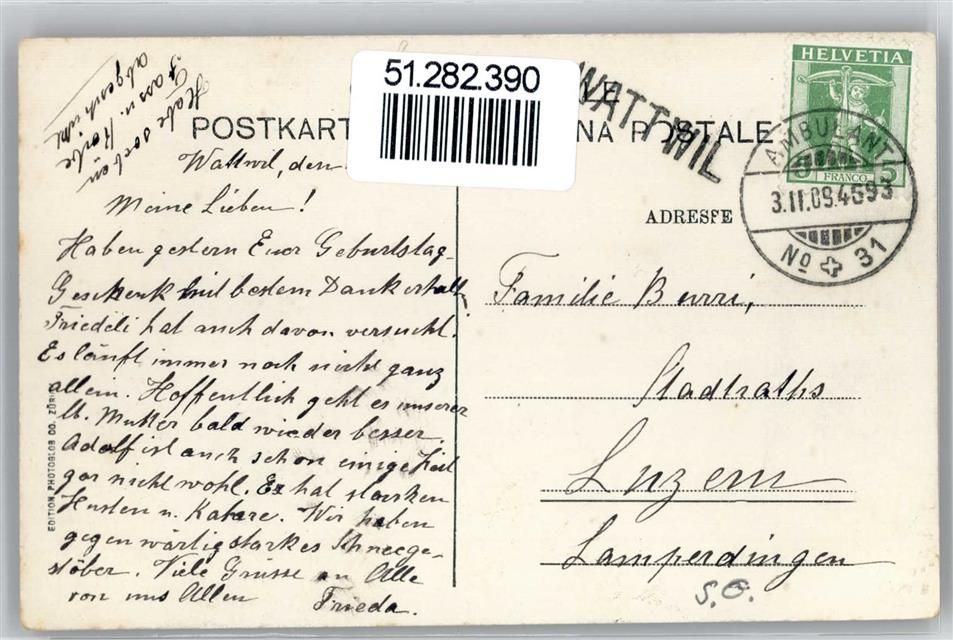 51.282.390
WATTWIL
HELVETIA
5 5
FRANCO
AMBULANT
3.II.09.4593
No 31
POSTKART
NA POSTALE
ADRESSE
Habe soeben
Karte
abgeschickt
Wattwil, den
Meine Lieben!
Haben gestern Euer Geburtstag-
Geschenk mit bestem Dank erhalt.
Friedeli hat auch davon versucht.
Es läuft immer noch nicht ganz
allein. Hoffentlich geht es unserer
lb. Mutter bald wieder besser.
Adolf ist auch schon einige Zeit
gar nicht wohl. Er hat starken
Husten u. Katare. Wir haben
gegenwärtig starkes Schneege-
stöber. Viele Grüsse an Alle
von uns Allen Frieda.
Familie Burri,
Stadtraths
Luzern
Lamperdingen
S. G.
EDITION PHOTOGLOB CO. ZÜRI